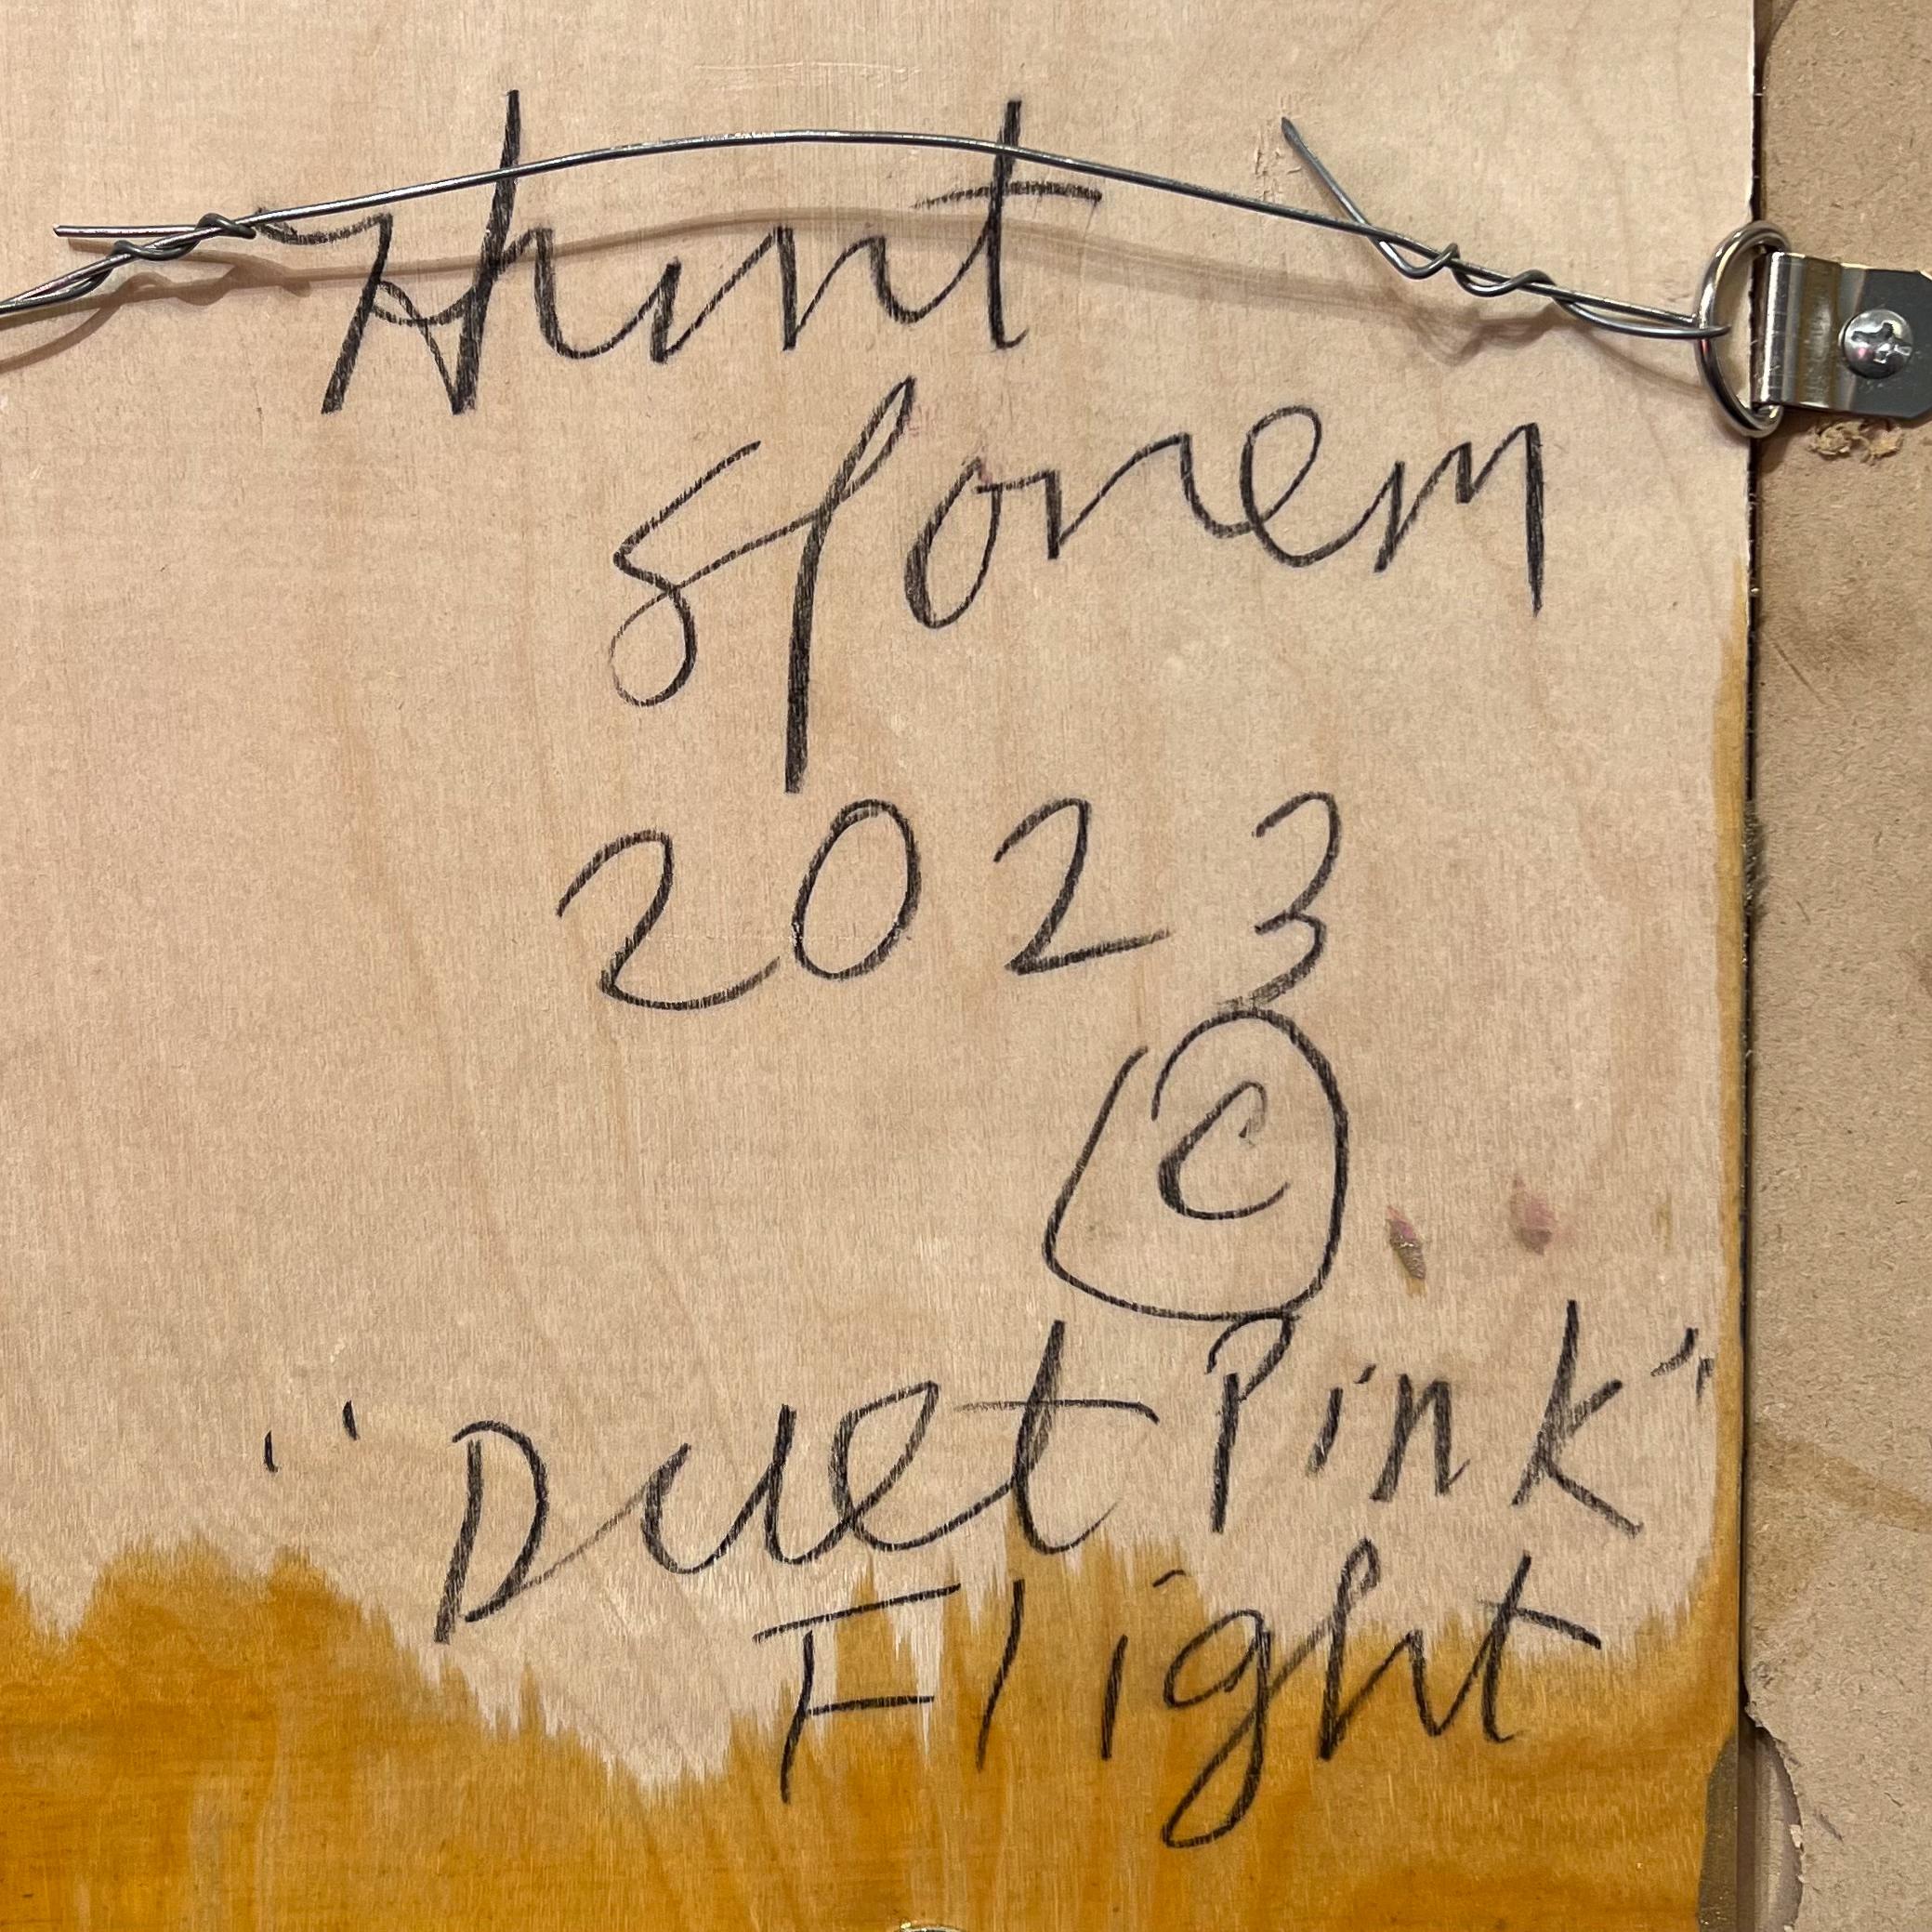 Hunt
Slonem
2023
©
"Duet Pink"
Flight